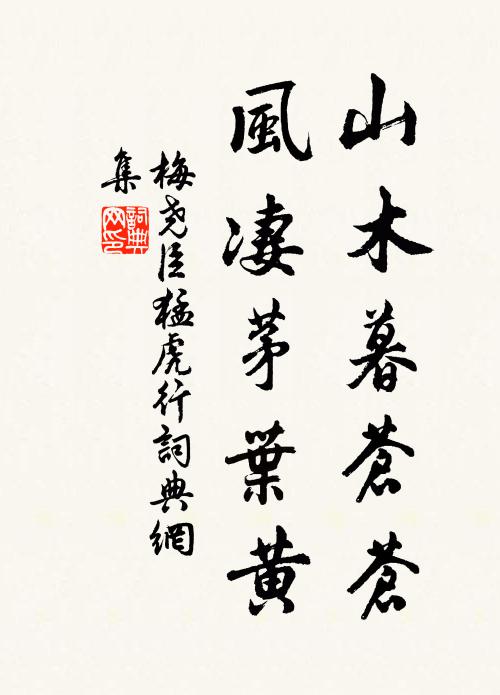 山木暮蒼蒼
風淒茅葉黄
梅尧臣猛虎行詞典網
集
詞典
网印